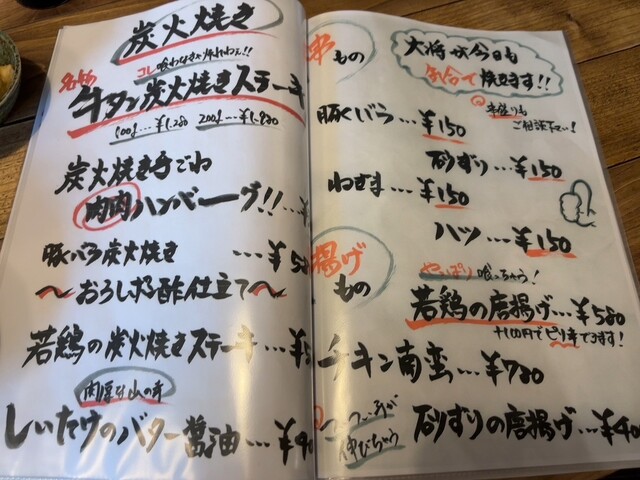 炭火焼き
コレ喰わなきゃ帰れねぇ!!
名物
牛タン炭火焼きステーキ
100g…¥1,280 200g…¥1,980
炭火焼き手ごね
肉肉ハンバーグ!!…¥
豚バラ炭火焼き …¥5
〜おろしポン酢仕立て〜
若鶏の炭火焼きステーキ…¥
肉厚
山の幸
しいたけのバター醤油…¥
串もの
大将が今日も
気合で焼きます!!
豚バラ…¥150
串盛りも
ご相談下さい!
砂ずり…¥150
ねぎま…¥150
ハツ…¥150
揚げもの
やっぱり喰っちゃう!
若鶏の唐揚げ…¥580
+100円でピリ辛できます!
チキン南蛮…¥780
伸びちゃう
砂ずりの唐揚げ…¥4